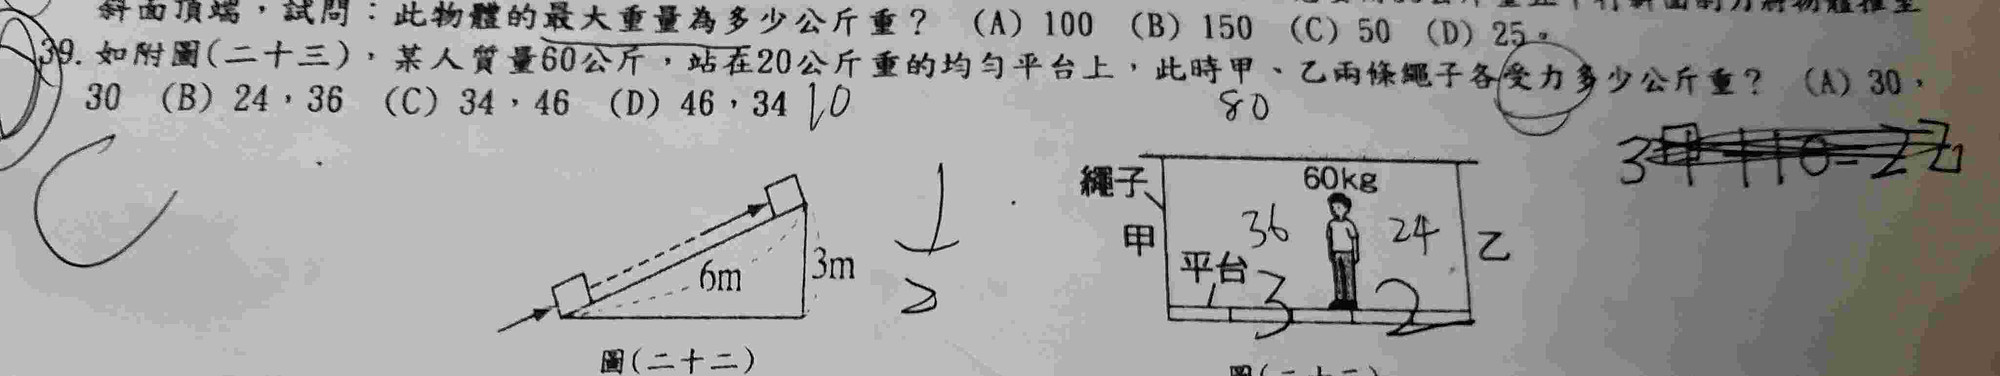 斜面頂端，試問：此物體的最大重量為多少公斤重？ (A) 100 (B) 150 (C) 50 (D) 25。
39. 如附圖(二十三)，某人質量60公斤，站在20公斤重的均勻平台上，此時甲、乙兩條繩子各受力多少公斤重？ (A) 30，
30 (B) 24，36 (C) 34，46 (D) 46，34 10
80
C
6m
3m
1
2
圖(二十二)
繩子
甲
平台
60kg
36
24
3
2
乙